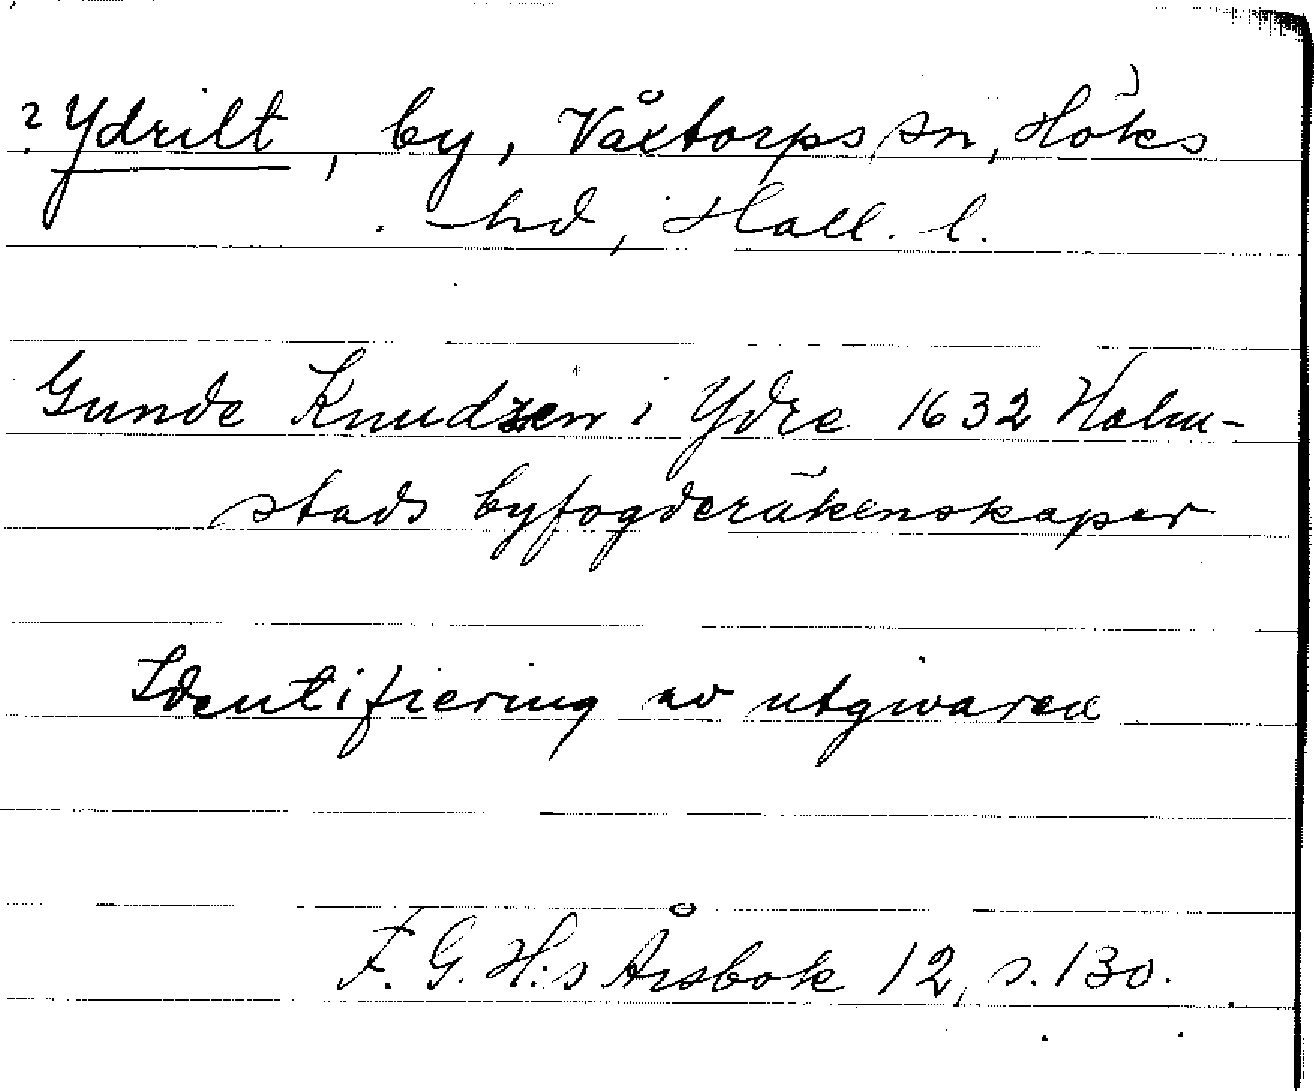 ? Ydrilt, by, Våxtorps sn, Höks
hd, Hall. l.
Gunde Knudzen i Ydre 1632 Halm-
stads byfogderäkenskaper
Identifiering av utgivaren
F. G. H:s Årsbok 12, s. 130.